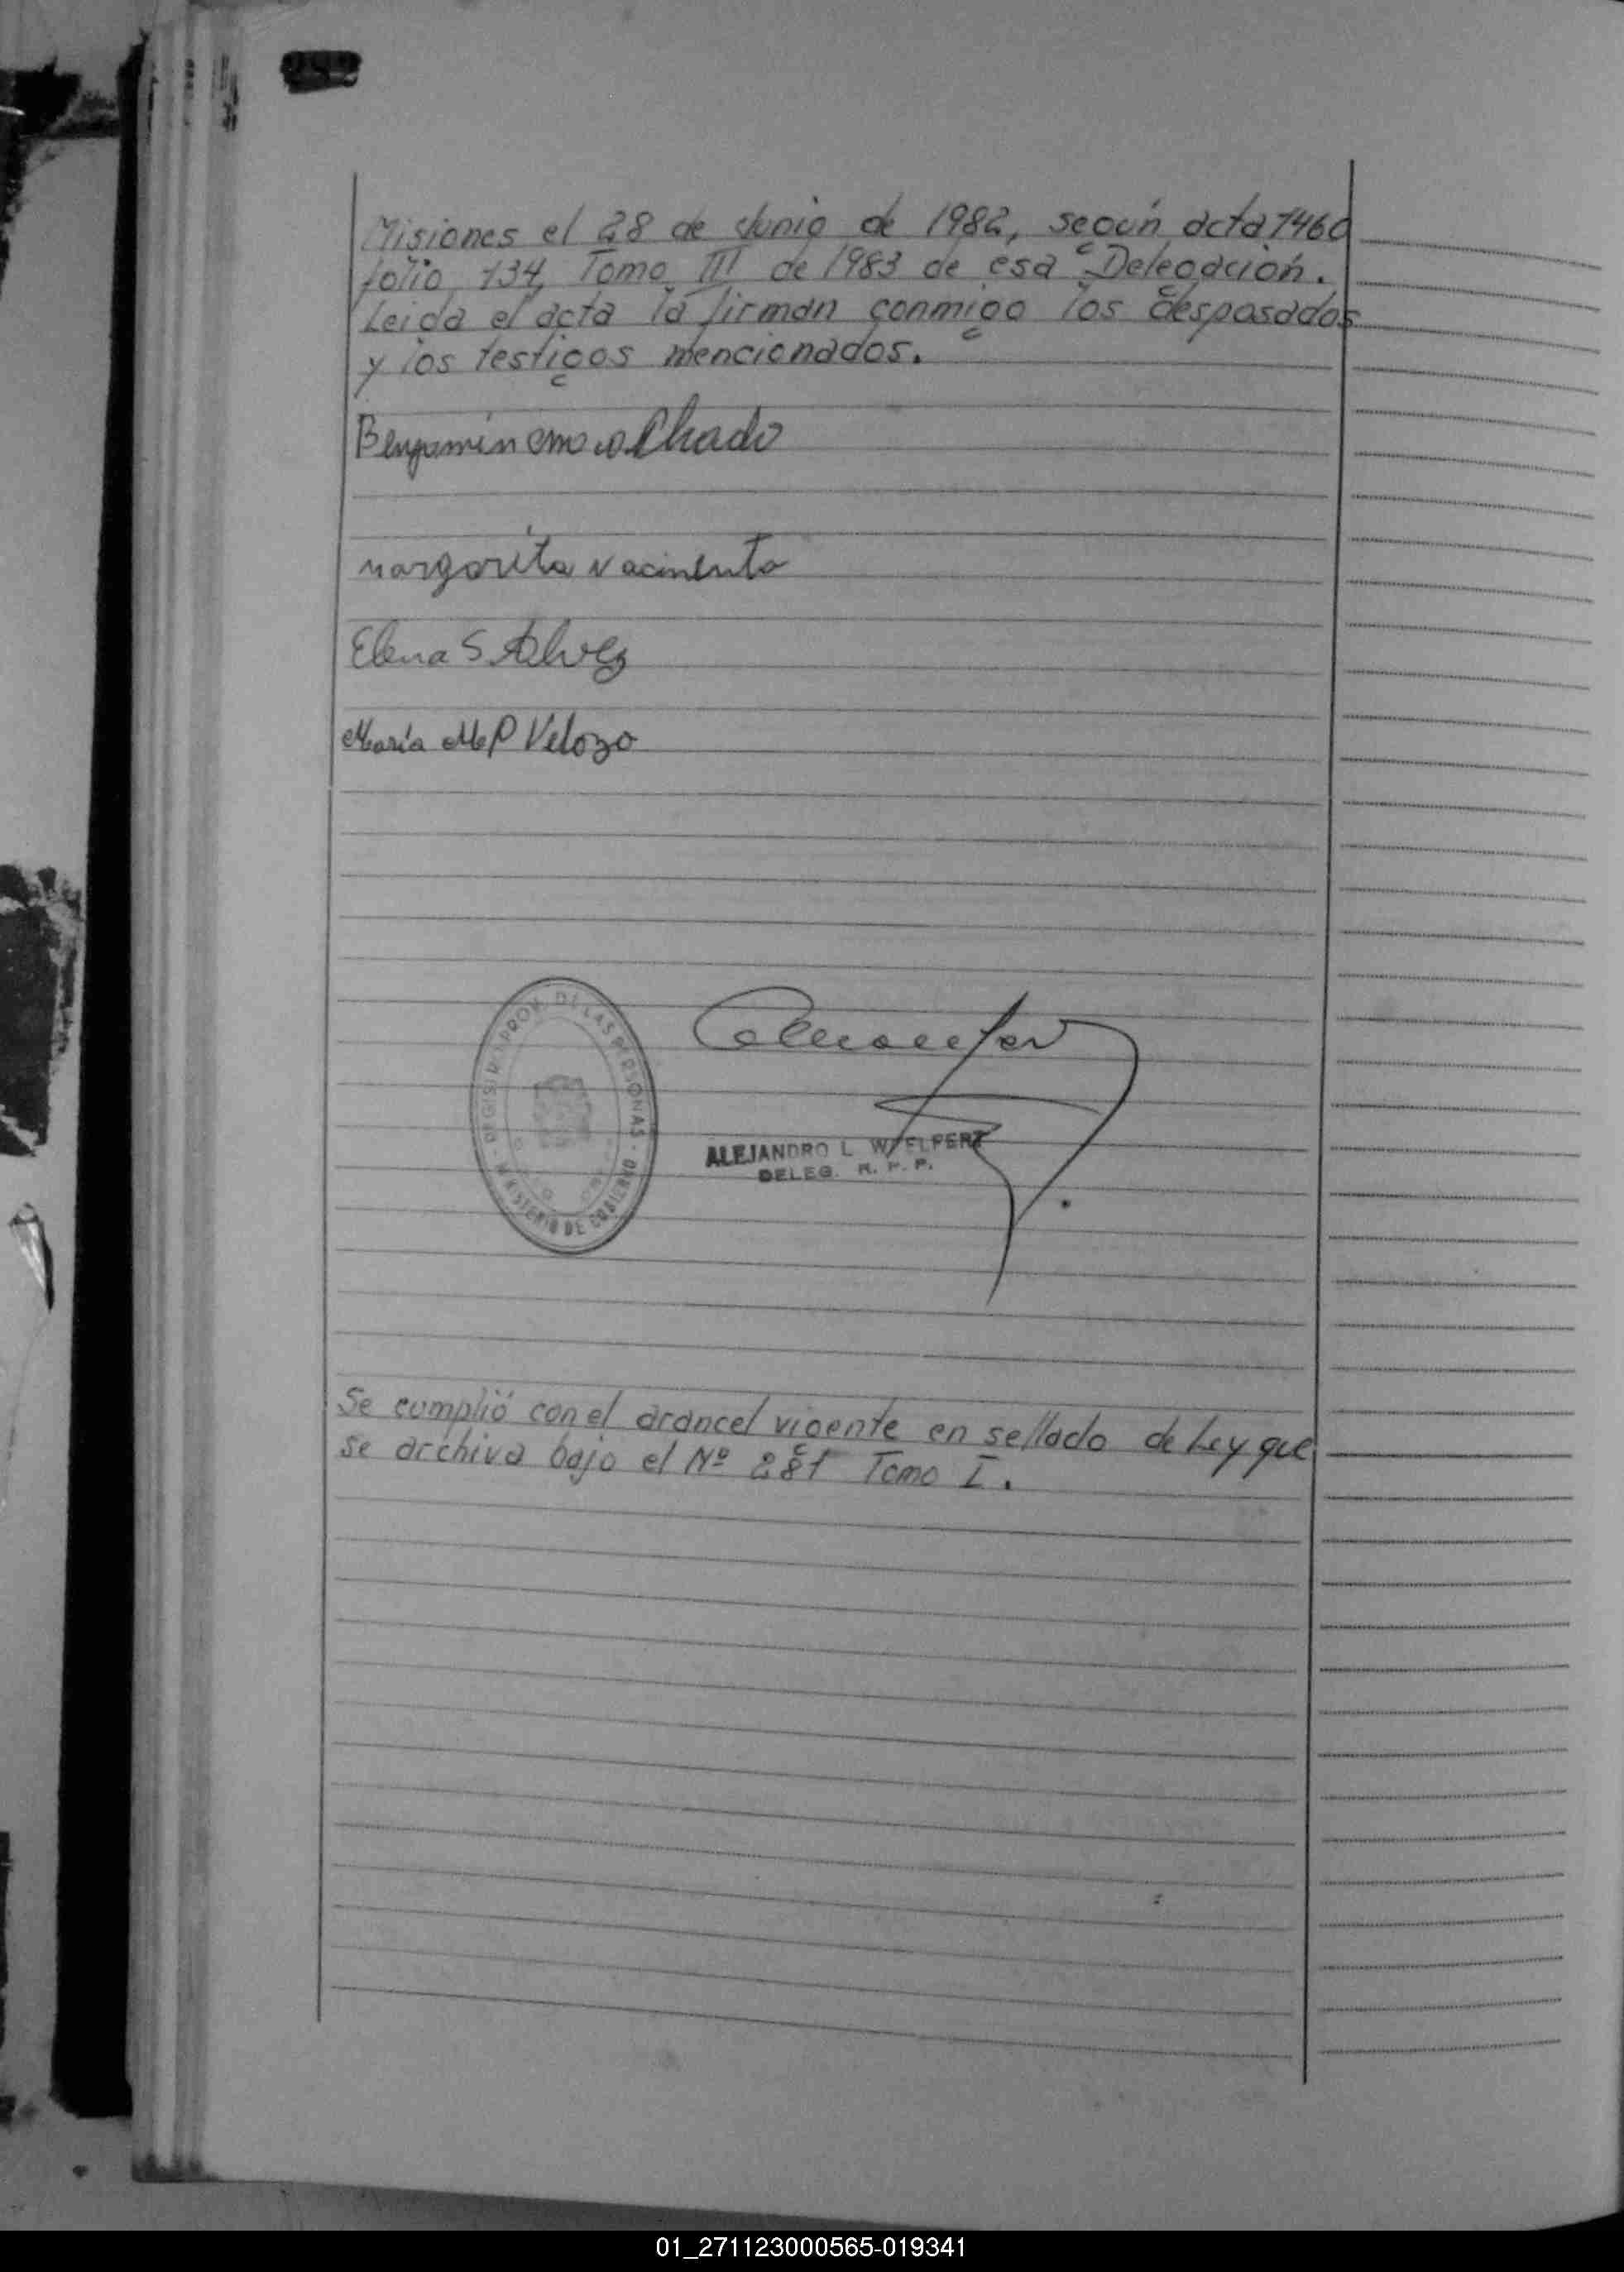 Misiones el 28 de Junio de 1982, según acta 1460
folio 134, Tomo III de 1983 de esa Delegación.
Leida el acta la firman conmigo los desposados
y los testigos mencionados.
Benjamin
margarita nacimento
Elena S. Alvez
María M P Velozo
MINISTERIO DE GOBIERNO
PROV. DE LAS PERSONAS
ALEJANDRO L
DELEG. R. P. P.
Se cumplió con el arancel vigente en sellado de Ley que
se archiva bajo el Nº 281 Tomo I.
01_271123000565-019341